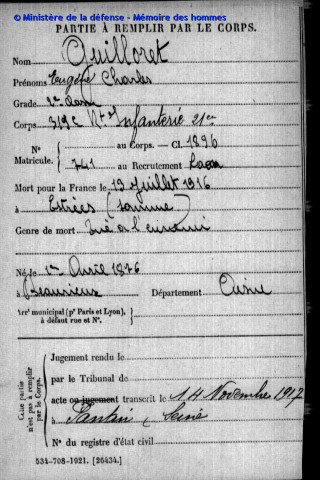 © Ministère de la défense - Mémoire des hommes
PARTIE À REMPLIR PAR LE CORPS.
Nom Quilloret
Prénoms Eugène Charles
Grade 2e classe
Corps 319e Rt d'Infanterie 21e
N° Matricule. au Corps. — Cl. 1896
741 au Recrutement Laon
Mort pour la France le 19 juillet 1916
à Estrées (Somme)
Genre de mort Tué à l'ennemi
Né le 1er Avril 1876
à Beaurieux Département Aisne
Arrt municipal (pr Paris et Lyon), à défaut rue et N°.
Cette partie n'est pas à remplir par le Corps.
Jugement rendu le
par le Tribunal de
acte ou jugement transcrit le 14 Novembre 1917
à Pantin, Seine
N° du registre d'état civil
534-708-1921. [26434.]